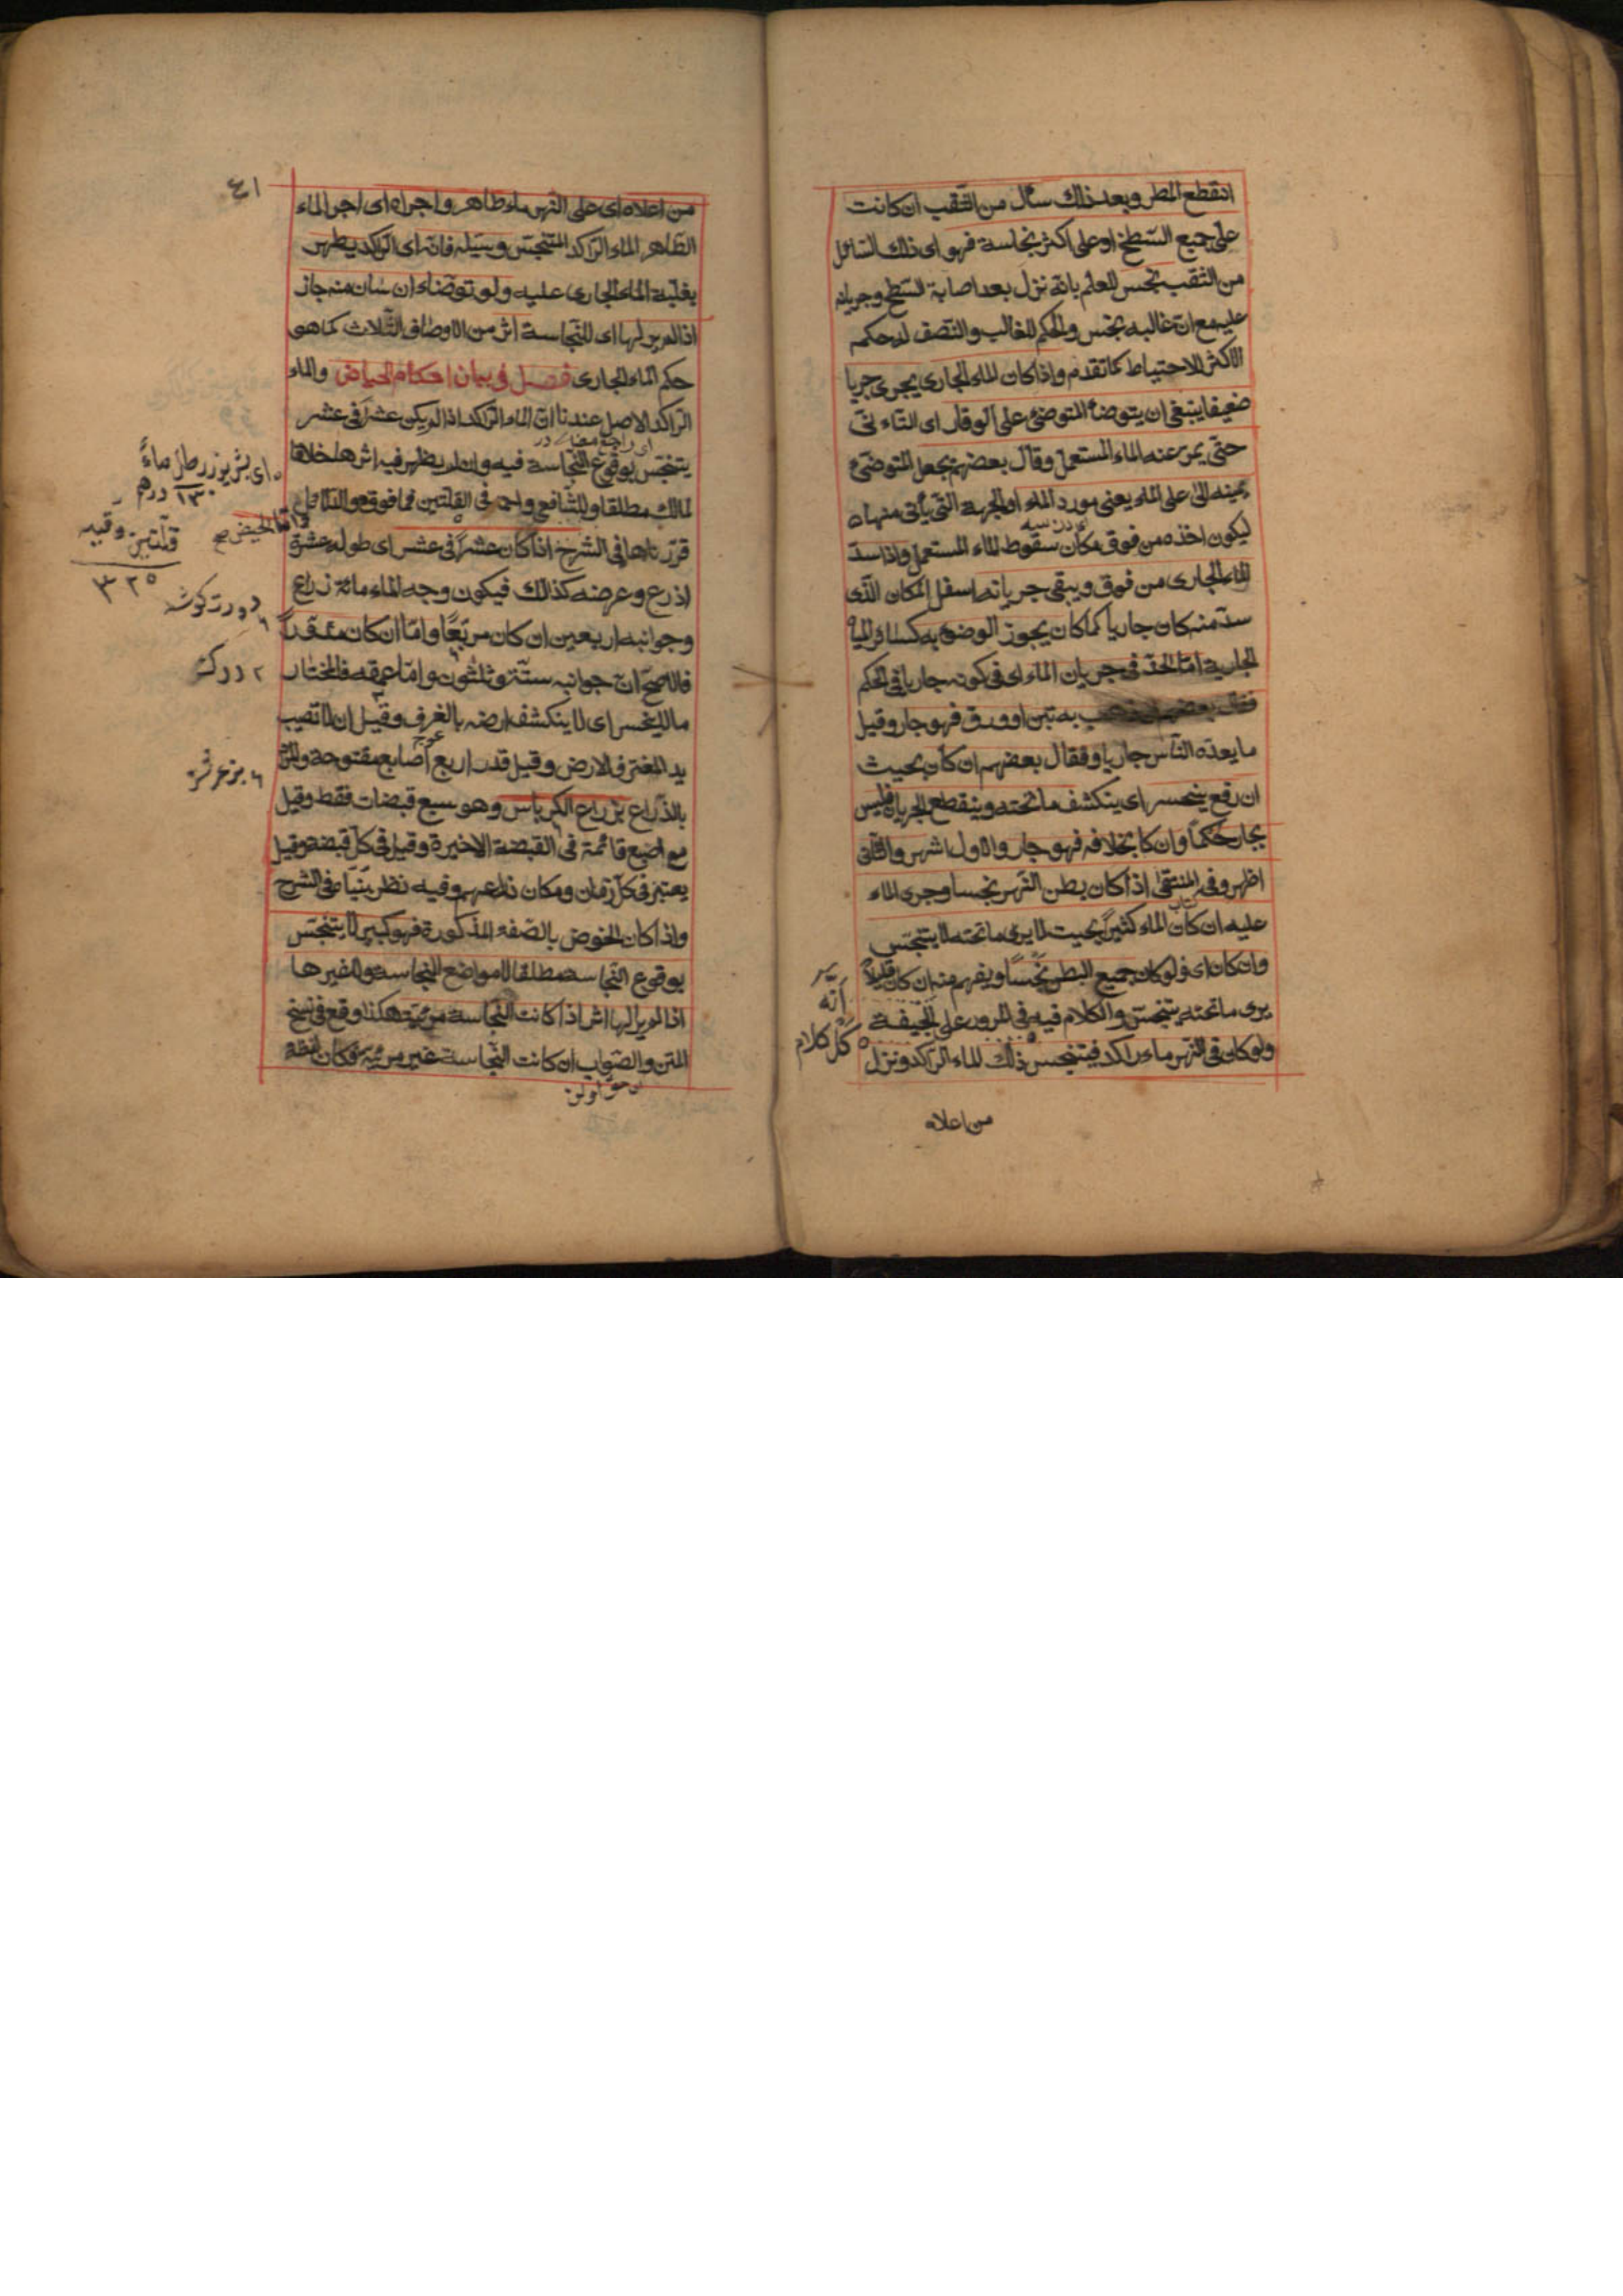 انقطع المطر وبعد ذلك سال من الثقب ان كانت
على جميع السّطح او على اكثر نجاسة فهو اى ذلك السّائل
من الثقب نجس للعلم بانّه نزل بعد اصابة السّطح وجريانه
عليه مع انّ غالبه نجس والحكم للغالب والنصف له حكم
الاكثر للاحتياط كما تقدم واذا كان الماء الجارى يجرى جريا
ضعيفا ينبغى ان يتوضأ المتوضئ على الوقار اى التاءنّى
حتّى يمرّ عنه الماء المستعمل وقال بعضهم يجعل المتوضئ
يمينه الى على الماء يعنى مورد الماء او الجهة التّى يأتى منها
ليكون اخذه من فوق مكان سقوط الماء المستعمل واذا سدّ
الماء الجارى من فوق ويبقى جريانه اسفل المكان الّذى
سدّ منه كان جاريا كما كان يجوز الوضوء به كسائر المياه
الجارية امّا الحدّ فى جريان الماء اى فى كونه جاريا فى الحكم
فقال بعضهم به تبن او ورق فهو جار وقيل
ما يعدّه النّاس جاريا وقال بعضهم ان كان بحيث
ان رفع ينحسر اى ينكشف ما تحته وينقطع الجريان فليس
بجار حكمًا وان كا بخلافه فهو جار والاول اشهر والثّانى
اظهر وفى المنتقى اذا كان بطن النّهر نجسا وجرى الماء
كتاب
عليه ان كان الماء كثيرًا بحيث لا يرى ما تحته لا يتنجّس
وان كان اى ولو كان جميع البطن نجسًا ويفهم منه ان كان قليلا
يرى ما تحته يتنجّس والكلام فيه فى المرور على الجيفة
ولو كان فى النّهر ماء راكد فيتنجس ذلك الماء الرّاكد ونزل
انّه
كل كلام
من اعلاه
٤١
من اعلاه اى على النّهر ماء طاهر واجراه اى اجر الماء
الطّاهر الماء الرّاكد المتنجّس وسيّله فانّه اى الرّاكد يطهر
بغلبة الماء الجارى عليه ولو توضاء انسان منه جاز
اذا لم ير لها اى للنّجاسة اثر من الاوصاف الثّلاث كما هو
حكم الماء الجارى فصل فى بيان احكام الحياض والماء
الرّاكد الاصل عندنا انّ الماء الرّاكد اذا لم يكن عشرًا فى عشر
يتنجّس بوقوع النّجاسة فيه وان لم يظهر فيه اثرها خلافا
لمالك مطلقا وللشّافعى واحمد فى القلّتين فما فوقهما والدّلائل
قرّرناها فى الشرح اذا كان عشرًا فى عشر اى طوله عشرة
اذرع وعرضه كذلك فيكون وجه الماء مائة ذراع
وجوانبه اربعين ان كان مربّعًا وامّا ان كان مدوّرًا
فالاصحّ انّ جوانبه ستّة وثلثون وامّا عمقه فالمختار
ما لا ينحسر اى لا ينكشف ارضه بالغرف وقيل ان لا تصيب
يد المغترف الارض وقيل قدر اربع اصابع مفتوحة والمراد
بالذّراع ذراع الكرباس وهو سبع قبضات فقط وقيل
مع اصبع قائمة فى القبضة الاخيرة وقيل فى كلّ قبضة وقيل
يعتبر فى كلّ زمان ومكان ذراعهم وفيه نظر بيّنّاه فى الشرح
واذا كان الحوض بالصّفة المذكورة فهو كبير لا يتنجّس
بوقوع النّجاسة مطلقا لا مواضع النّجاسة ولا غيرها
اذا لم ير لها اثر اذا كانت النّجاسة مرئيّة هكذا وقع فى نسخ
المتن والصّواب ان كانت النّجاسة غير مرئيّة فكان
اى بشيوز رطل ماءً
١٣٠ درهم
قلّتين وقيه
٣٢٥
وامّا الحيض صح
دورت كوشه